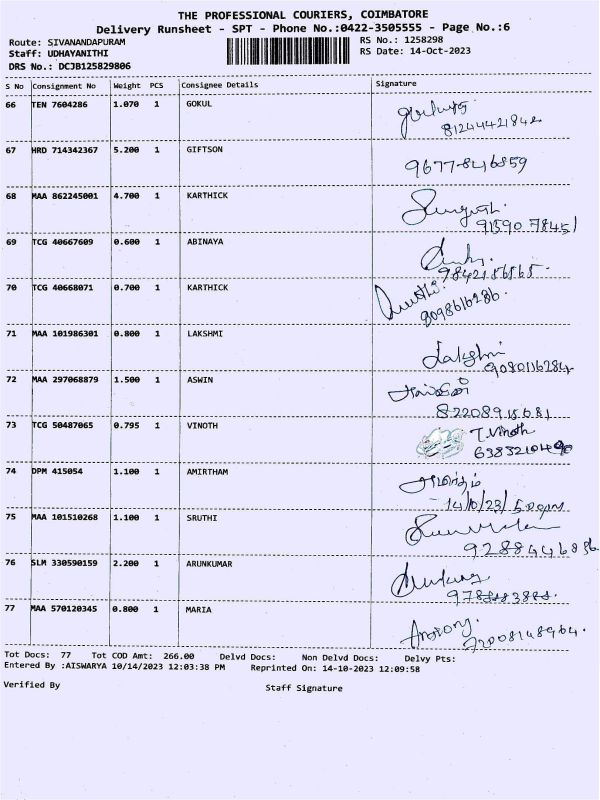 THE PROFESSIONAL COURIERS, COIMBATORE
Delivery Runsheet - SPT - Phone No.:0422-3505555 - Page No.:6
Route: SIVANANDAPURAM RS No.: 1258298
Staff: UDHAYANITHI RS Date: 14-Oct-2023
DRS No.: DCJB125829806
S No Consignment No Weight PCS Consignee Details Signature
66 TEN 7604286 1.070 1 GOKUL
8124442184
67 HRD 714342367 5.200 1 GIFTSON
9677846859
68 MAA 862245001 4.700 1 KARTHICK
9159078451
69 TCG 40667609 0.600 1 ABINAYA
70 TCG 40668071 0.700 1 KARTHICK
8098616286.
71 MAA 101986301 0.800 1 LAKSHMI
Lakshmi
9080116284
72 MAA 297068879 1.500 1 ASWIN
82208915681
73 TCG 50487065 0.795 1 VINOTH T.Vinoth
74 DPM 415054 1.100 1 AMIRTHAM
14/10/23/ 5.00pm
75 MAA 101510268 1.100 1 SRUTHI
9288446836
76 SLM 330590159 2.200 1 ARUNKUMAR
77 MAA 570120345 0.800 1 MARIA
Tot Docs: 77 Tot COD Amt: 266.00 Delvd Docs: Non Delvd Docs: Delvy Pts:
Entered By :AISWARYA 10/14/2023 12:03:38 PM Reprinted On: 14-10-2023 12:09:58
Verified By Staff Signature